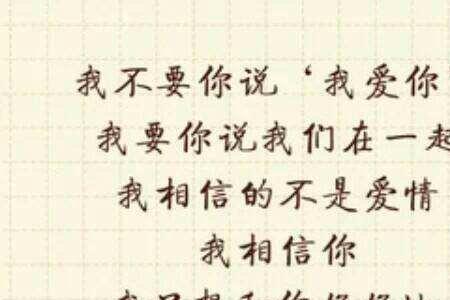 我不要你说‘我爱你
我要你说我们在一起
我相信的不是爱情
我相信你